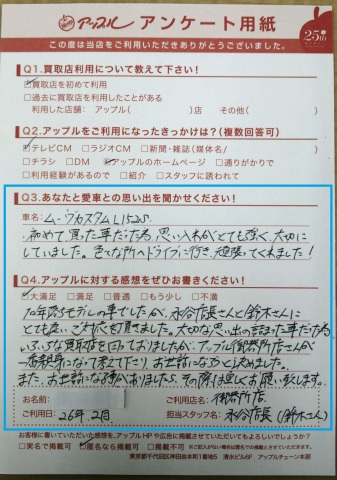 アップル アンケート用紙
25th
この度は当店をご利用いただきありがとうございました。
Q1.買取店利用について教えて下さい!
☑買取店を初めて利用
□過去に買取店を利用したことがある
利用した店舗: アップル( )店 その他( )
Q2.アップルをご利用になったきっかけは?(複数回答可)
☑テレビCM □ラジオCM □新聞・雑誌(媒体名/ )
□チラシ □DM ☑アップルのホームページ □通りがかりで
□利用経験があるので □紹介 □スタッフに誘われて
Q3.あなたと愛車との思い出を聞かせください!
車名: ムーヴカスタム L152S
初めて買った車だった為、思い入れがとても強く、大切に
していました。色々な所へドライブに行き、頑張ってくれました!
Q4.アップルに対する感想をぜひお書きください!
☑大満足 □満足 □普通 □もう少し □不満
10年落ちモデルの車でしたが、水谷店長さんと鈴木さんに
とても良いご対応を頂きました。大切な思い出の詰まった車だった為
いろいろな買取店を回っておりましたが、アップル御器所店さんが
一番親身になって考えて下さり、お世話になろうと決めました。
また、お世話になる事がありましたら、その際は宜しくお願い致します。
お名前:
ご利用店名: 御器所店
ご利用日: 26年2月
担当スタッフ名: 水谷店長(鈴木さん)
お客様に書いていただいた感想を、アップルHPや広告に掲載させていただいてもよろしいでしょうか?
□実名で掲載可 ☑匿名なら掲載可 □不可
※ご記入がない場合は匿名での掲載とさせていただきます。
東京都千代田区神田岩本町1番地 清水ビル6F アップルチェーン本部